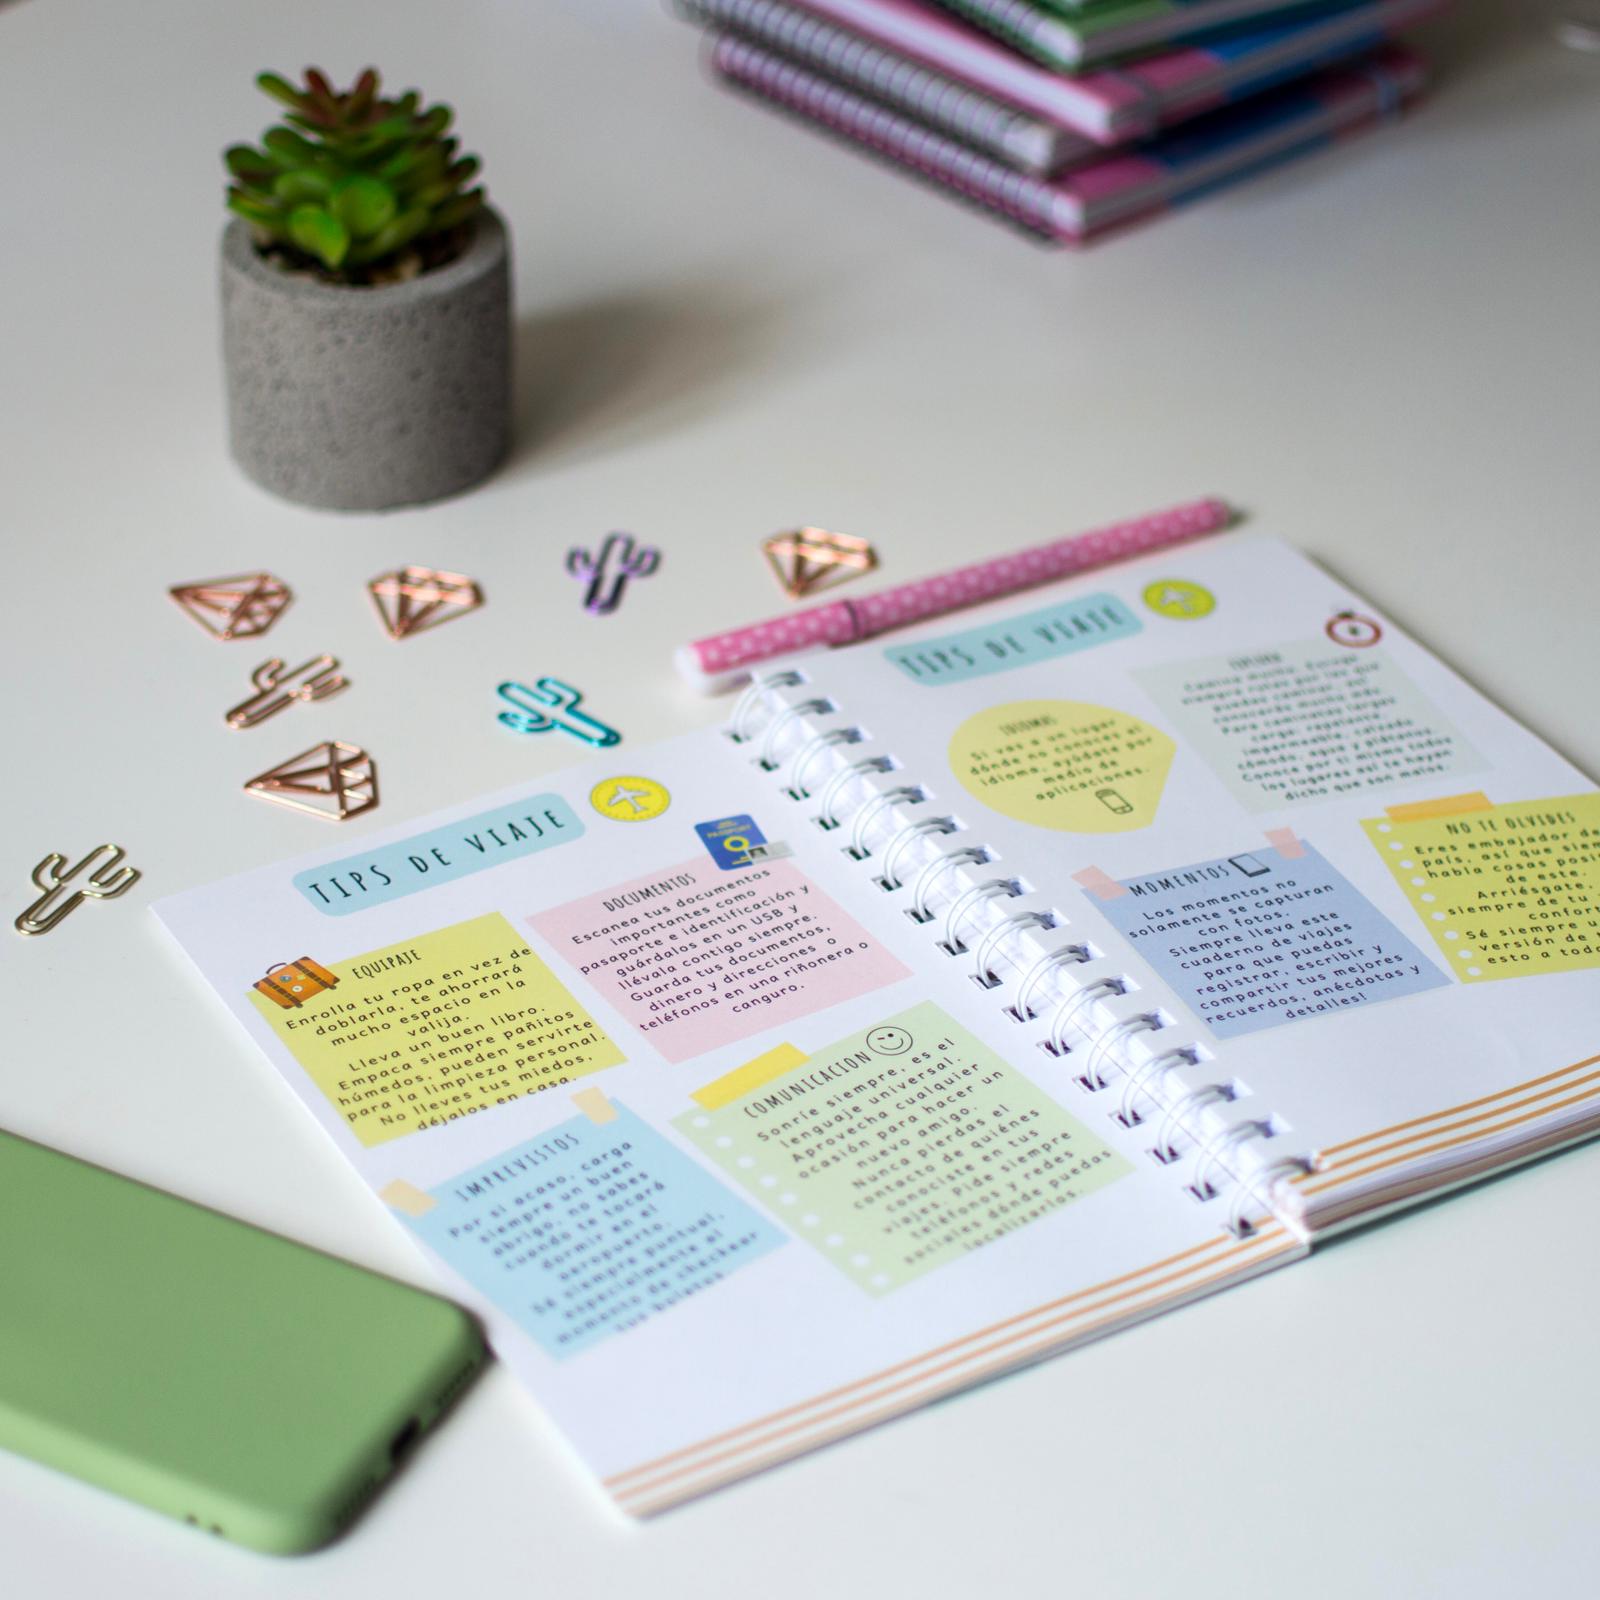 TIPS DE VIAJE
EQUIPAJE
Enrolla tu ropa en vez de
doblarla, te ahorrará
mucho espacio en la
valija.
Lleva un buen libro.
Empaca siempre pañitos
húmedos, pueden servirte
para la limpieza personal.
No lleves tus miedos,
déjalos en casa.
PASSPORT
DOCUMENTOS
Escanea tus documentos
importantes como
pasaporte e identificación y
guárdalos en un USB y
llévala contigo siempre.
Guarda tus documentos,
dinero y direcciones o
teléfonos en una riñonera o
canguro.
IMPREVISTOS
Por si acaso, carga
siempre un buen
abrigo, no sabes
cuando te tocará
dormir en el
aeropuerto.
Sé siempre puntual,
especialmente al
momento de checkear
tus boletos.
COMUNICACION
Sonríe siempre, es el
lenguaje universal.
Aprovecha cualquier
ocasión para hacer un
nuevo amigo.
Nunca pierdas el
contacto de quiénes
conociste en tus
viajes. Pide siempre
teléfonos y redes
sociales dónde puedas
localizarlos.
TIPS DE VIAJE
IDIOMAS
Si vas a un lugar
dónde no conoces el
idioma, ayúdate por
medio de
aplicaciones.
EXPLORA
Camina mucho. Escoge
siempre rutas por las que
puedas caminar, así
conocerás mucho más.
Para caminatas largas
carga: repelente,
impermeable, calzado
cómodo, agua y plátanos.
Conoce por ti mismo todos
los lugares así te hayan
dicho que son malos.
MOMENTOS
Los momentos no
solamente se capturan
con fotos.
Siempre lleva este
cuaderno de viajes
para que puedas
registrar, escribir y
compartir tus mejores
recuerdos, anécdotas y
detalles!
NO TE OLVIDES
Eres embajador de
país, así que siem
habla cosas posi
de este.
Arriésgate,
siempre de tu
confort
Sé siempre u
versión de
esto a todo